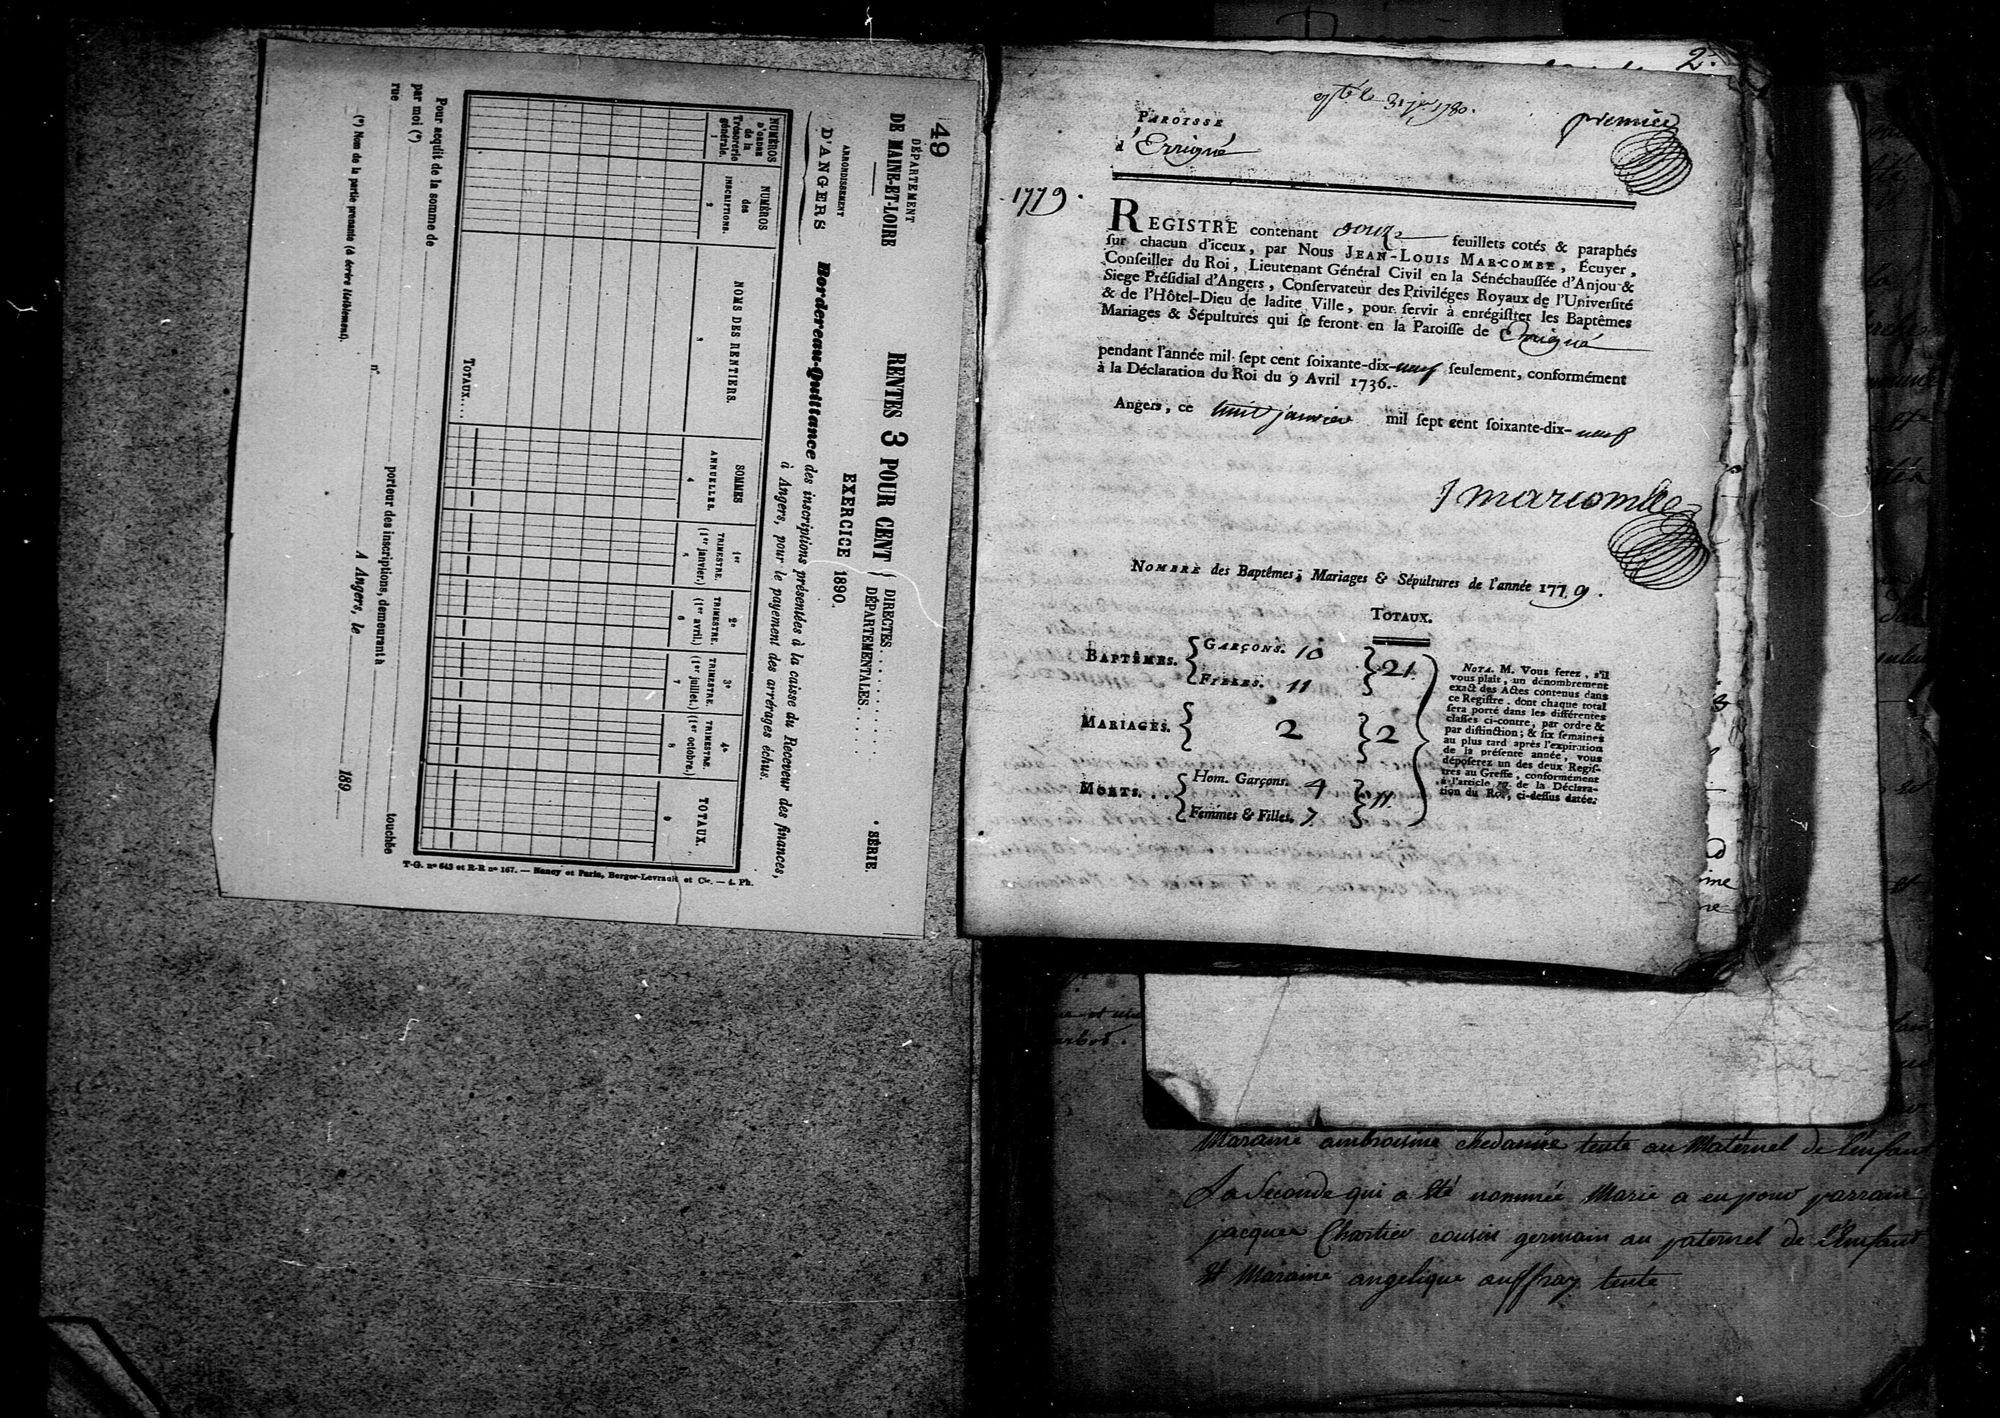 49
DÉPARTEMENT
DE MAINE-ET-LOIRE
ARRONDISSEMENT
D'ANGERS
RENTES 3 POUR CENT } DIRECTES
DÉPARTEMENTALES
SÉRIE
EXERCICE 1890.
Bordereau-Quittance des inscriptions présentées à la caisse du Receveur des finances,
à Angers, pour le payement des arrérages échus.
NUMÉROS d'ordre de la Trésorerie générale. 1
NUMÉROS des INSCRIPTIONS. 2
NOMS DES RENTIERS. 3
SOMMES ANNUELLES. 4
1er TRIMESTRE. (1er janvier.) 5
2e TRIMESTRE. (1er avril.) 6
3e TRIMESTRE. (1er juillet.) 7
4e TRIMESTRE. (1er octobre.) 8
TOTAUX. 9
TOTAUX....
Pour acquit de la somme de
par moi (*) porteur des inscriptions, demeurant à touchée
rue n°
A Angers, le 189
(*) Nom de la partie prenante (à écrire lisiblement).
T-G. n° 643 et R-R n° 167. — Nancy et Paris, Berger-Levrault et Cie. — 4. Ph.
2.
31 1780.
première
PAROISSE
d'Errigné
1779.
REGISTRE contenant douze feuillets cotés & paraphés
sur chacun d'iceux, par Nous JEAN-LOUIS MARCOMBE, Écuyer,
Conseiller du Roi, Lieutenant Général Civil en la Sénéchaussée d'Anjou &
Siege Présidial d'Angers, Conservateur des Priviléges Royaux de l'Université
& de l'Hôtel-Dieu de ladite Ville, pour servir à enrégistrer les Baptêmes
Mariages & Sépultures qui se feront en la Paroisse de Errigné
pendant l'année mil sept cent soixante-dix-neuf seulement, conformément
à la Déclaration du Roi du 9 Avril 1736.
Angers, ce huit janvier mil sept cent soixante-dix-neuf
J marcombe
NOMBRE des Baptêmes, Mariages & Sépultures de l'année 1779.
TOTAUX.
BAPTÊMES. { GARÇONS. 10 } 21
FILLES. 11
MARIAGES. { 2 } 2
MORTS... { Hom. Garçons. 4 } 11
Femmes & Filles. 7
NOTA. M. Vous ferez, s'il
vous plait, un dénombrement
exact des Actes contenus dans
ce Registre, dont chaque total
sera porté dans les différentes
classes ci-contre, par ordre &
par distinction; & six semaines
au plus tard après l'expiration
de la présente année, vous
déposerez un des deux Regis-
tres au Greffe, conformément
à l'article de la Déclara-
tion du Roi, ci-dessus datée.
Maraine ambroisine chedanne tente au Maternel de l'enfant
La Seconde qui a été nommée Marie a eu pour parrain
jacques Chartier cousin germain au paternel de l'Enfant
et Maraine angelique auffray tente